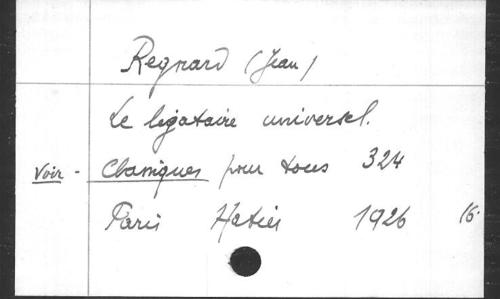 Regnard (Jean)
Le légataire universel.
Voir - Classiques pour tous 324
Paris Hatier 1926 16.